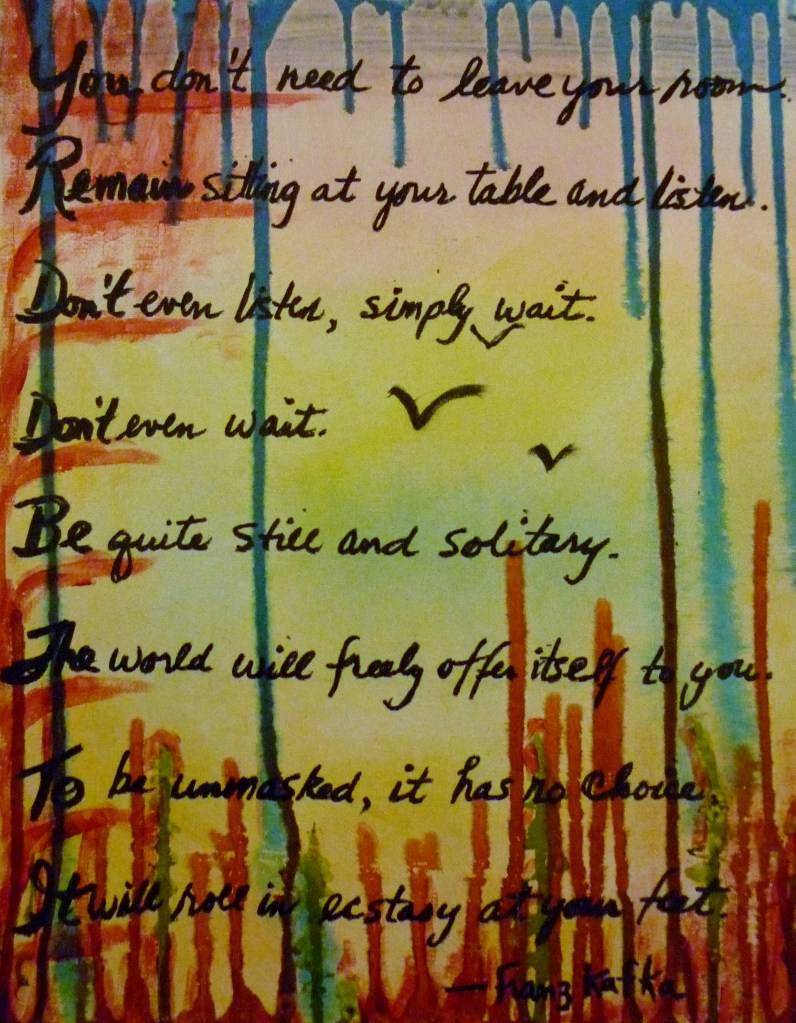 You don't need to leave your room.
Remain sitting at your table and listen.
Don't even listen, simply wait.
Don't even wait.
Be quite still and solitary.
The world will freely offer itself to you.
To be unmasked, it has no choice.
It will roll in ecstasy at your feet.
— Franz Kafka